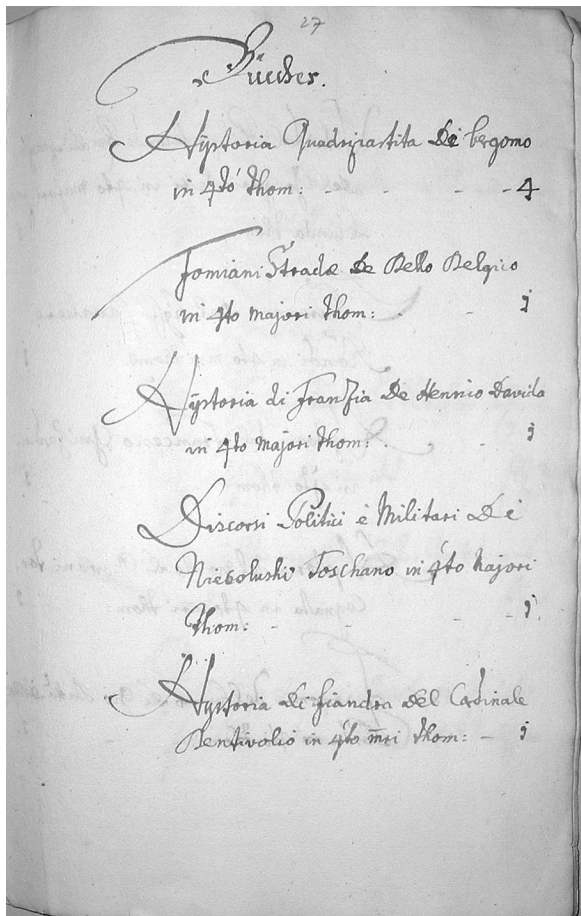 27
Bücher.
Hystoria Quadripartita Di bergomo
in 4to thom: - - - - 4
Fomiani Strade De Bello Belgico
in 4to majori thom: - - j
Hystoria di Franzia De Henrico Davida
in 4to majori thom: - j
Discorsi Politici è Militari Di
Toschano in 4to Majori
thom: - - - j.
Hystoria di fiandra del Cardinale
Bentivolio in 4to mri thom: - j